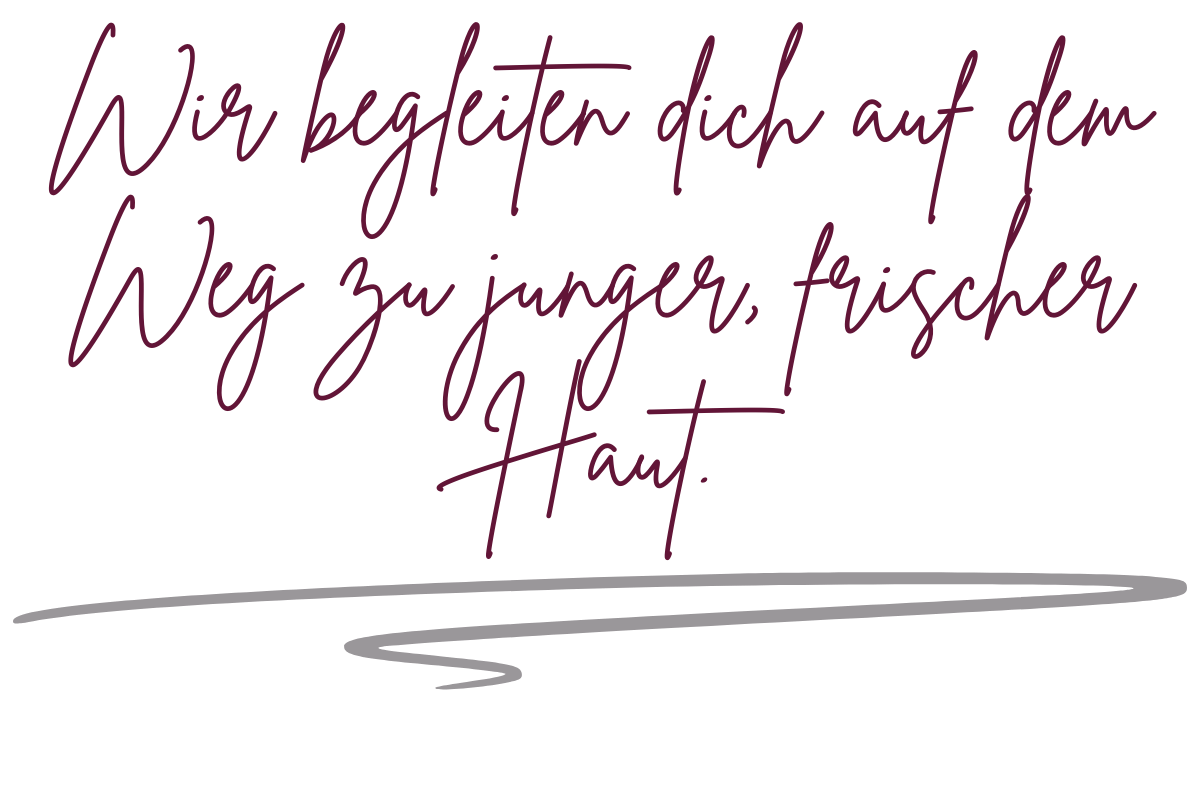 Wir begleiten dich auf dem
Weg zu junger, frischer
Haut.